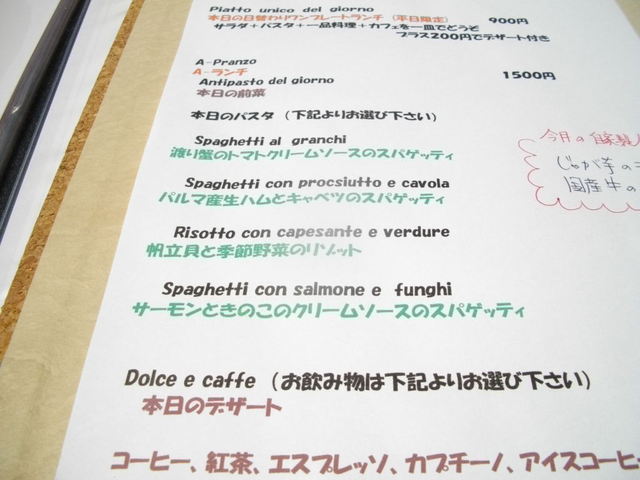 Piatto unico del giorno
本日の日替わりワンプレートランチ（平日限定） 900円
サラダ＋パスタ＋一品料理＋カフェを一皿でどうぞ
プラス200円でデザート付き
A-Pranzo
A-ランチ 1500円
Antipasto del giorno
本日の前菜
本日のパスタ（下記よりお選び下さい）
Spaghetti al granchi
渡り蟹のトマトクリームソースのスパゲッティ
Spaghetti con procsiutto e cavola
パルマ産生ハムとキャベツのスパゲッティ
Risotto con capesante e verdure
帆立貝と季節野菜のリゾット
Spaghetti con salmone e funghi
サーモンときのこのクリームソースのスパゲッティ
Dolce e caffe（お飲み物は下記よりお選び下さい）
本日のデザート
コーヒー、紅茶、エスプレッソ、カプチーノ、アイスコーヒ
今月の自家製
じゃが芋の
国産牛の